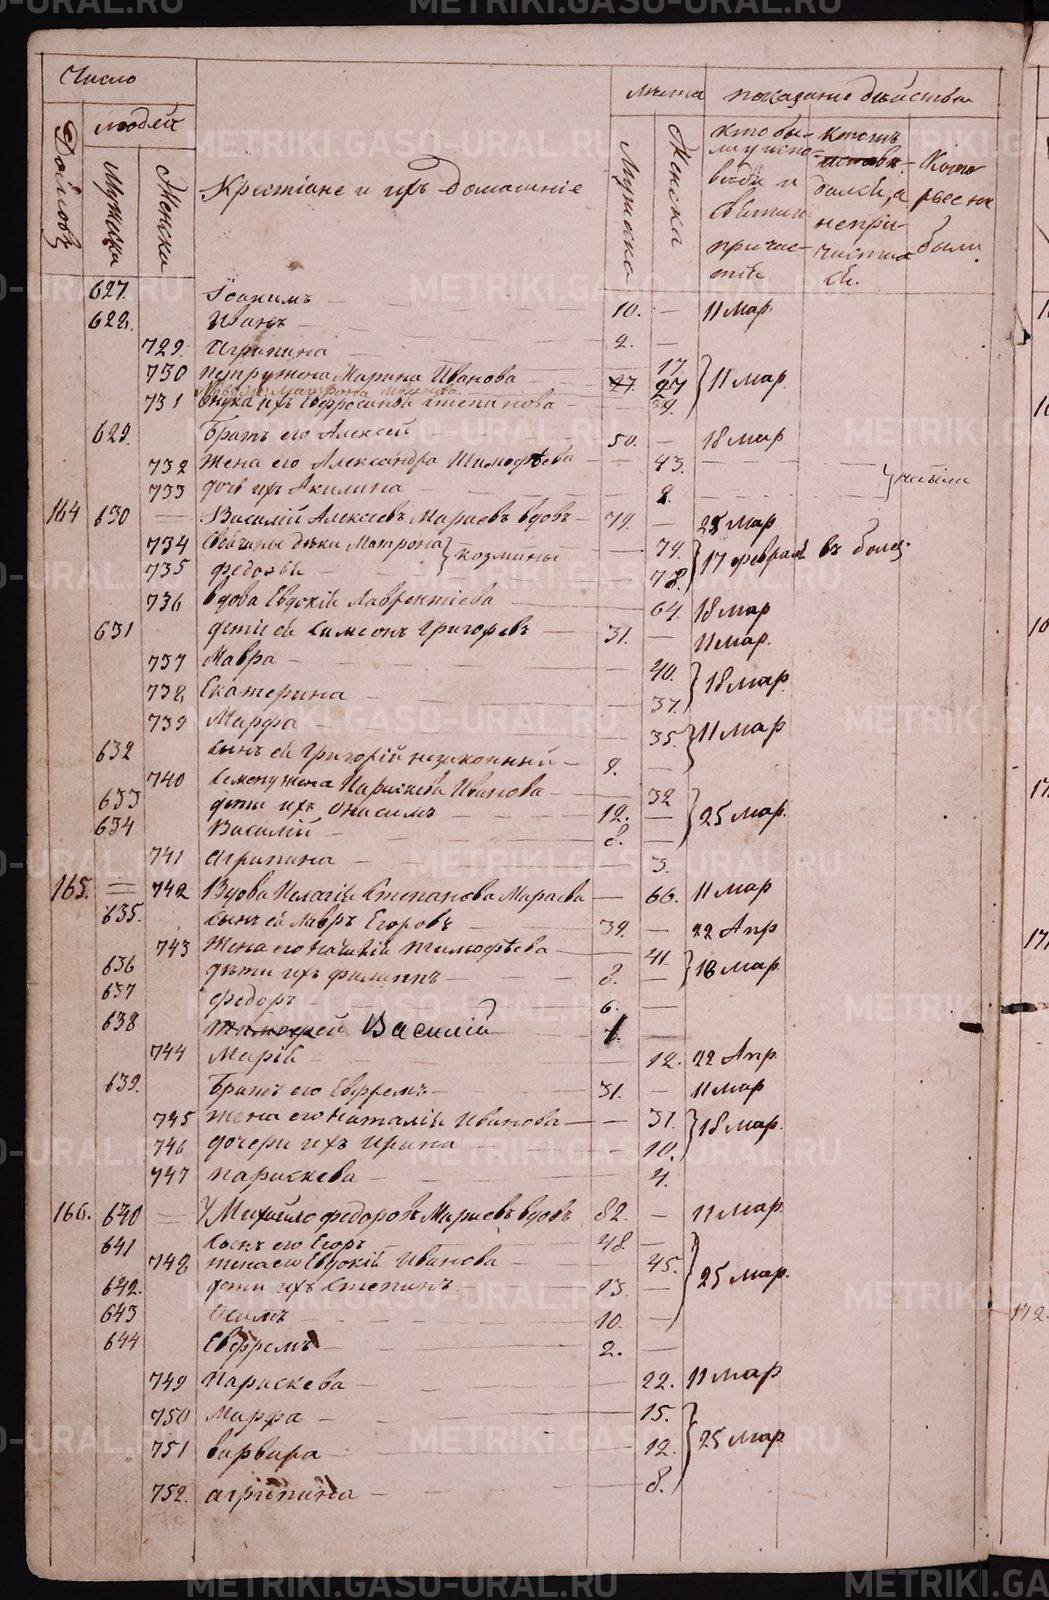 Число
людей
лѣта показаніе дѣйства
Дворовъ
Мужска
Женска
Крестіане и ихъ домашніе
Мужска
Женска
кто бы-
ли у испо-
вѣди и
святаго
причас-
тія
кто отъ
исповѣ-
дался, а
не при-
частил
ся.
Кото
рые не
были
627. Іоакимъ —
628. Иванъ — 10. — 11 мар.
729. Агрипина 2. —
730 Петру жена Марина Иванова 17.
27. 27 11 мар.
731 внука ихъ Евфросинья Степанова — 29.
629. Братъ его Алексей 50. — 18 мар
732 жена его Александра Тимофѣева — 43.
733 дочь ихъ Акилина 8.
164 630 = Василій Алексеевъ Мараевъ вдовъ — 79. — 25 мар
734 дѣвки Матрона козмины — 79. 17 февраля въ болез
735 Федосья — 78.
736 вдова Евдокія Лаврентіева — 64. 18 мар
631 дети ея Симеонъ Григорьевъ — 31. — 11 мар.
737 Мавра — 40. 18 мар.
738 Екатерина — 37.
739 Марфа — 35. 11 мар
632 сынъ ея Григорій незаконный — 9. —
740 Семену жена Параскева Иванова — 32 25 мар.
633 дети ихъ Онасимъ 12. —
634 Василій — 8. —
741 Агрипина — 3.
165. = 742 Вдова Пелагія Степанова Мараева — 66. 11 мар
635. сынъ ея Лавръ Егоровъ — 39. — 22 Апр
743 жена его Тимофѣева — 41. 18 мар
636 дѣти ихъ Филиппъ — 8. —
637 Федоръ — 6. —
638 Василій 1 —
744 Марія — 12. 22 Апр.
639. Братъ его Ефремъ — 31. — 11 мар
745 жена его Наталія Иванова — 31. 18 мар.
746 дочери ихъ Ирина — 10.
747 Параскева — 4.
166. 640 = Михайло Федоровъ Мараевъ вдовъ 82. — 11 мар
641 сынъ его Егоръ 48. —
748 жена его Евдокія Иванова — 45. 25 мар.
642. дети ихъ Степанъ 13. —
643 Осипъ 10. —
644 Ефремъ 2. —
749 Параскева — 22. 11 мар
750 Марфа — 15.
751 Варвара — 12. 25 мар
752. Агрипина — 8.
METRIKI.GASO-URAL.RU